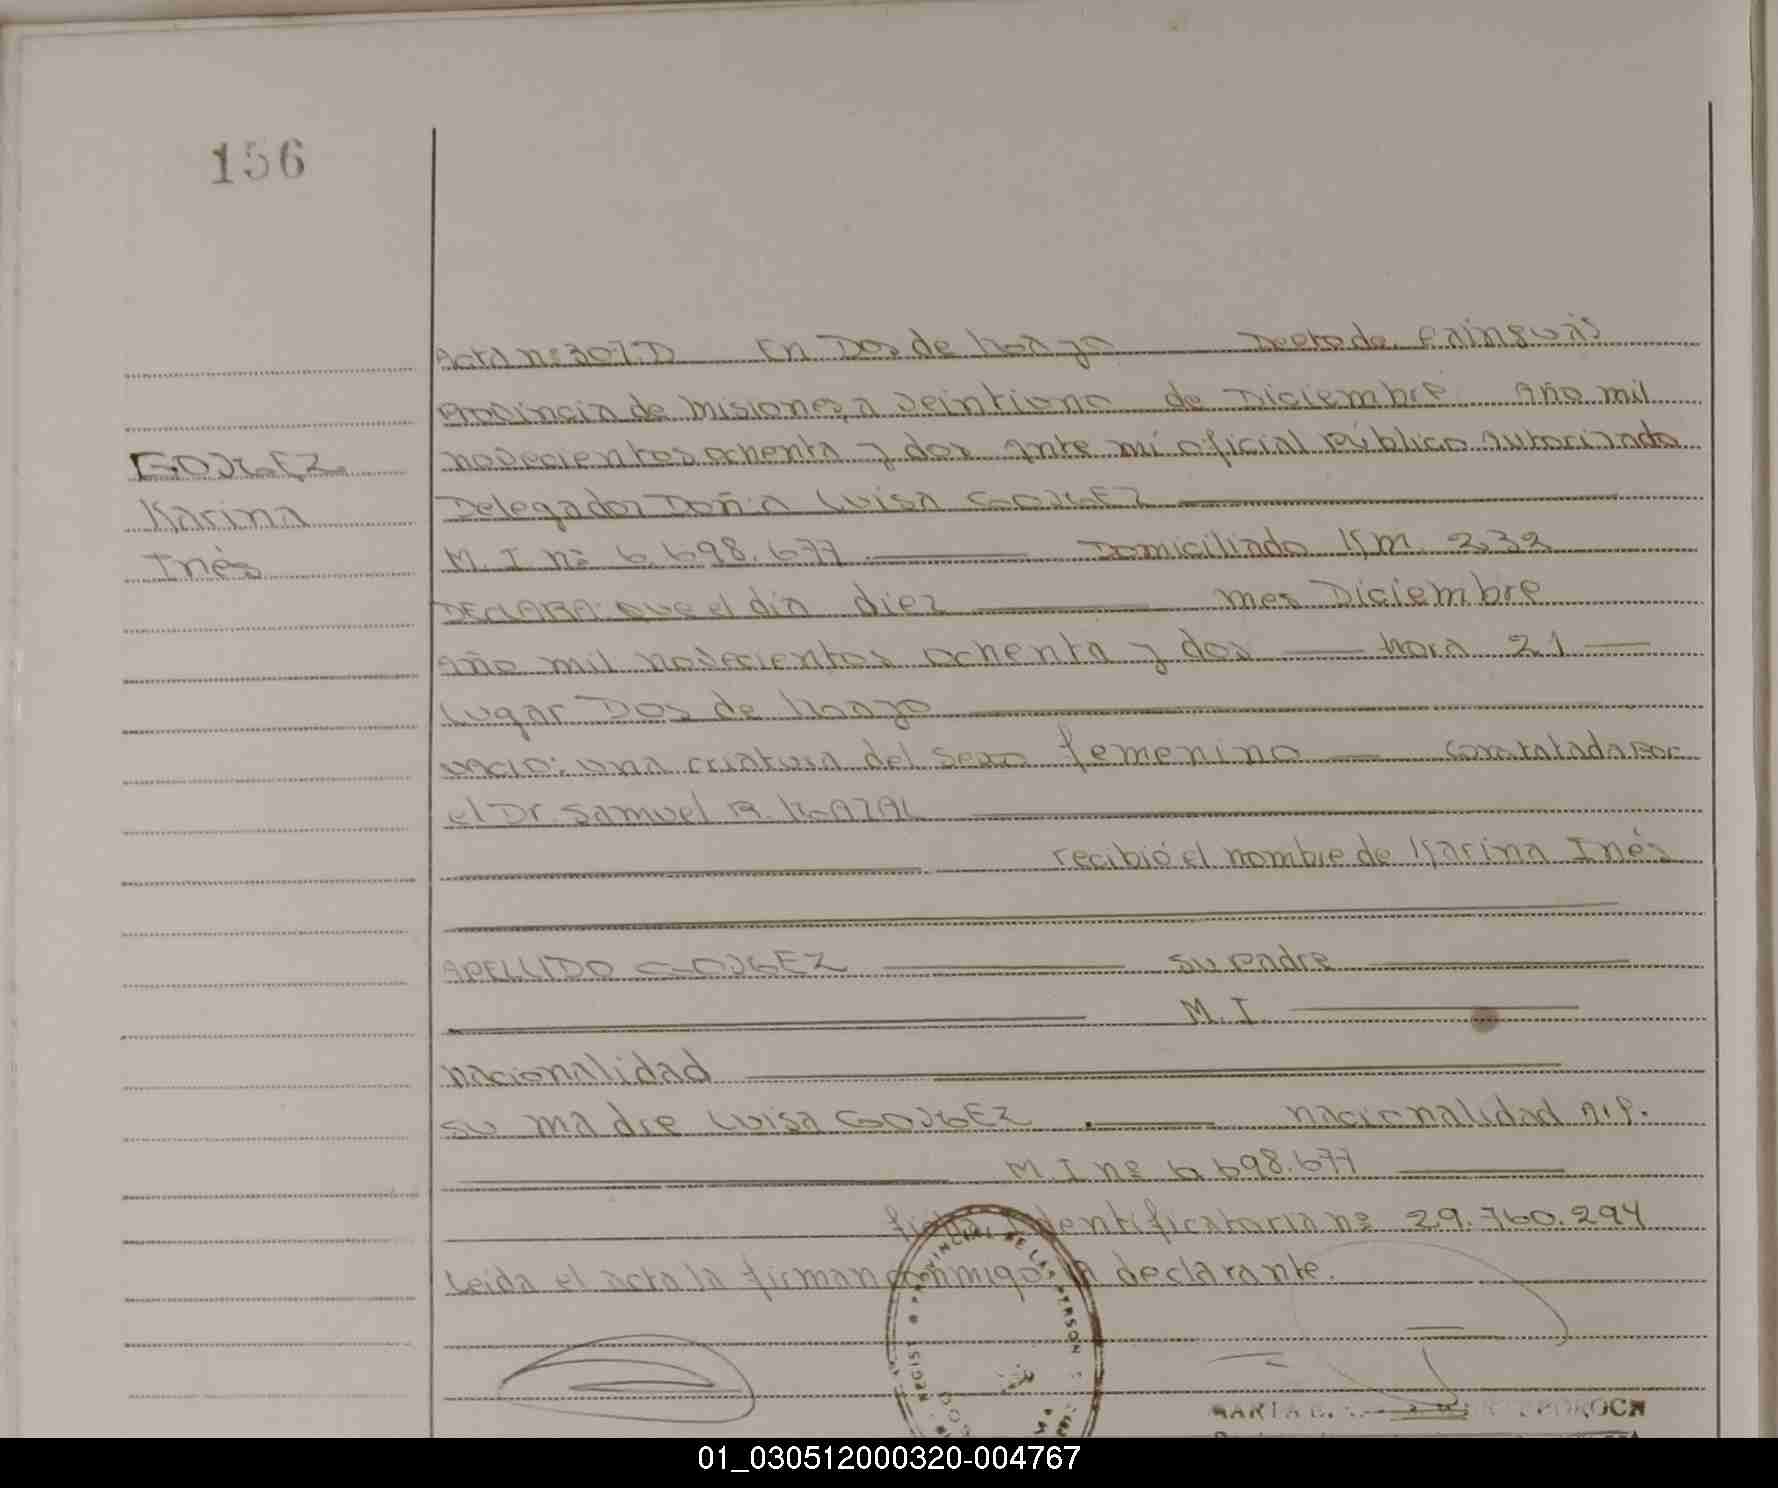 156
Acta nº 307.D En Dos de Mayo Depto de Cainguás
Provincia de Misiones, a veintiuno de Diciembre Año mil
GOMEZ
novecientos ochenta y dos Ante mí oficial Público Autorizado
Karina
Delegador Doña Luisa GOMEZ
Inés
M. I. nº 6.698.677 Domiciliado Km. 232
DECLARA: Que el día diez mes Diciembre
Año mil novecientos ochenta y dos hora 21
Lugar Dos de Mayo
Nació: una criatura del sexo femenino Constatada por
el Dr. Samuel R.
recibió el nombre de Karina Inés
APELLIDO GOMEZ su Padre
M. I.
nacionalidad
su madre Luisa GOMEZ nacionalidad
M. I nº 6.698.677
ficha identificatoria nº 29.760.294
Leída el acta la firman conmigo la declarante.
01_030512000320-004767